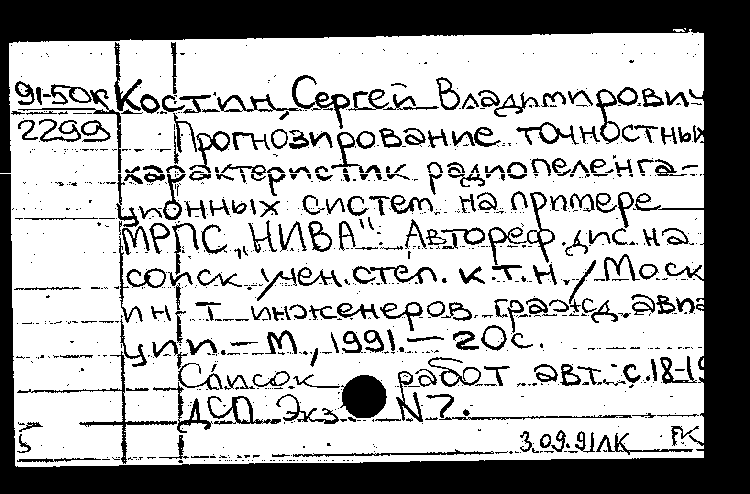 91-50к Костин, Сергей Владимирович
2299 Прогнозирование точностных
характеристик радиопеленга-
ционных систем на примере
МРПС „НИВА": Автореф. дис. на
соиск. учен. степ. к.т.н. / Моск.
ин-т инженеров гражд. авиа
ции. — М., 1991. — 20с.
Список работ авт.: с.18-19
ДСП Экз. N7.
5 3.09.91 ЛК РК